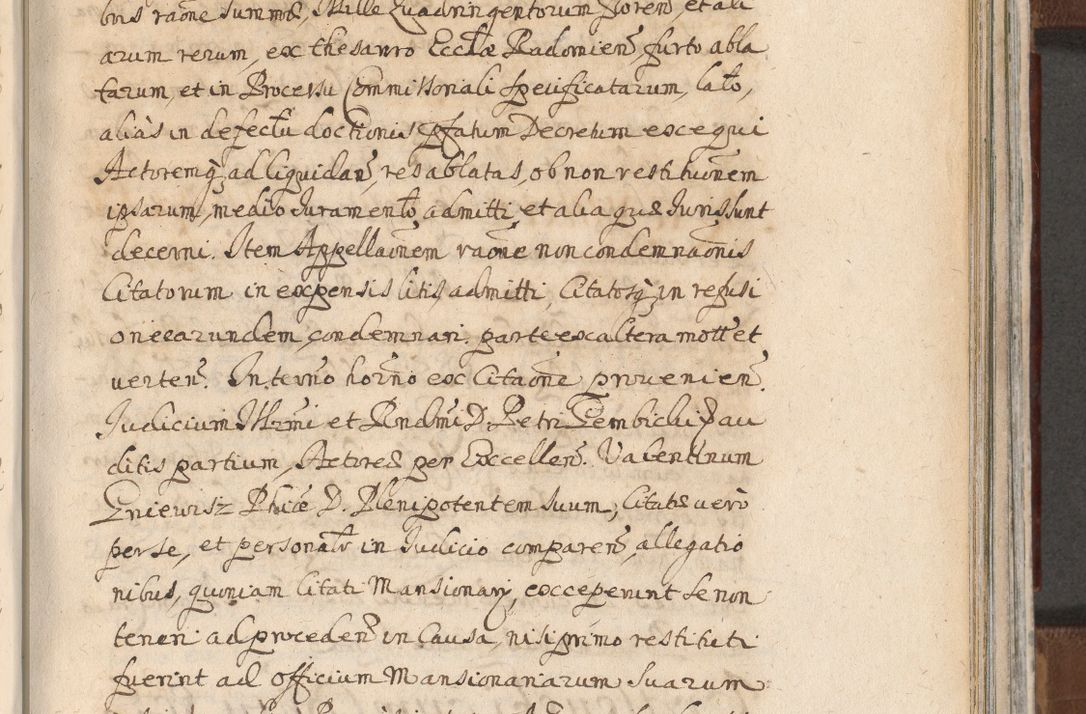 bus raõne summæ, Mille Quadringentorum florenˢ, et ali
arum rerum, ex thesauro Ecctæ Radomienˢ, furto abla
tarum, et in Processu Commissoriali specificatarum, lato,
aliàs in defectũ doctionis pfatum Decretum exequi
Actoremq̃, ad liquidanˢ, res ablatas, ob non restitutionem
ipsarum, medio Juramento admitti, et alia quæ Juris sunt
decerni. Item Appellaõnem raõne non condemnaõnis
Citatorum in expensis litis, admitti, Citatosq̃, in refusi
one earundem, condemnari. parte ex altera mott et
vertenˢ. In termõ horño ex Citaõne provenienˢ.
Judicium Illrmi et Rndmi D. Petri Gembicki,
ditis partium, Actores per Excellenˢ. Valentinum
Gniewisz Phiæ D. Plenipotentem suum, Citatis verò
per se, et personatr in Judicio comparenˢ, allegatio
nibus, quoniam Citati Mansionarij, exceperunt se non
teneri ad procedenˢ in Causa, nisi primo restituti
fuerint ad officium Mansionariarum suarum